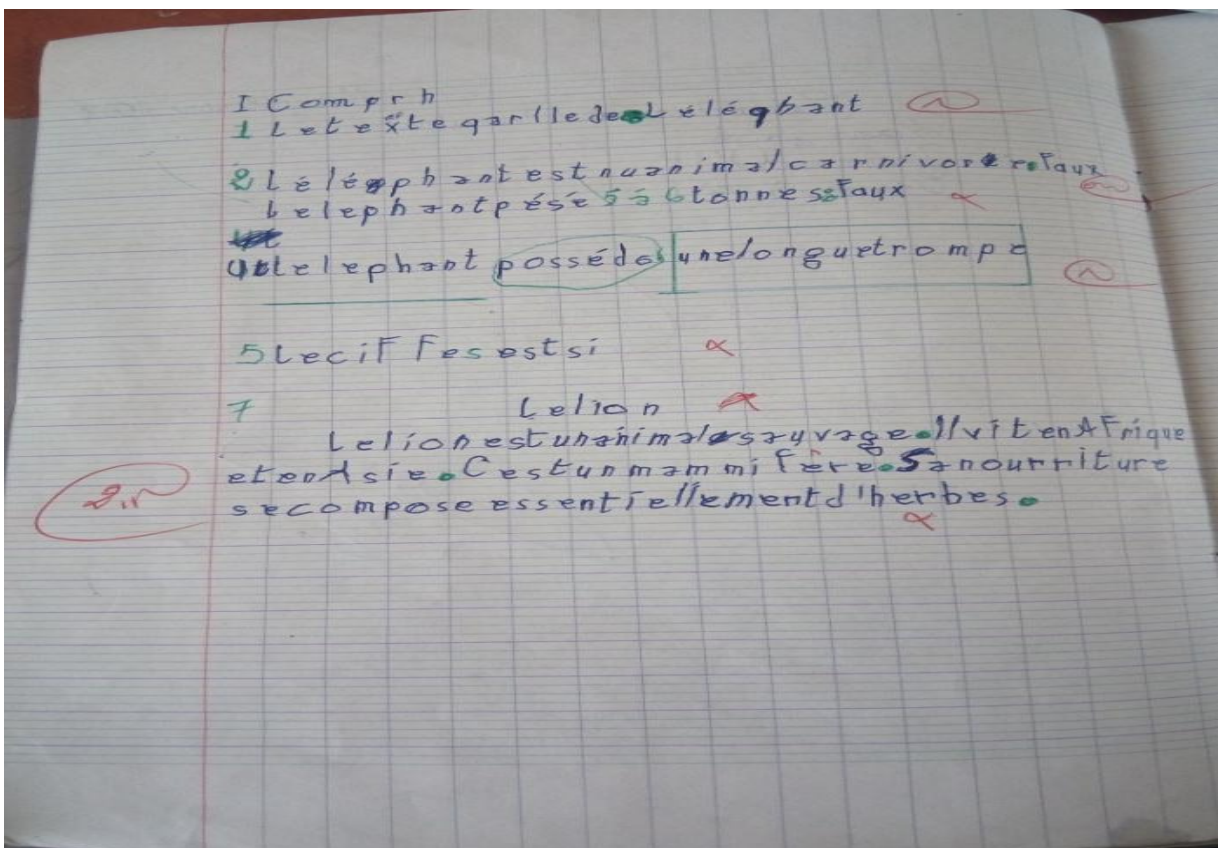 I Comprh
1 Letexte qarlledeL eléqbant
2 L eléephantestnuanimalcarnivore: Faux
Lelephantpésé 5 à 6 tonnes: Faux
4 Lelephant possédes unelonguetrompe
5 Leciffesestsi
7 Lelion
Lelionestunanimalsauvage. Il vitenAfrique
etenAsie. Cestunmammifère. Sanourriture
secomposeessentiellementd'herbes.